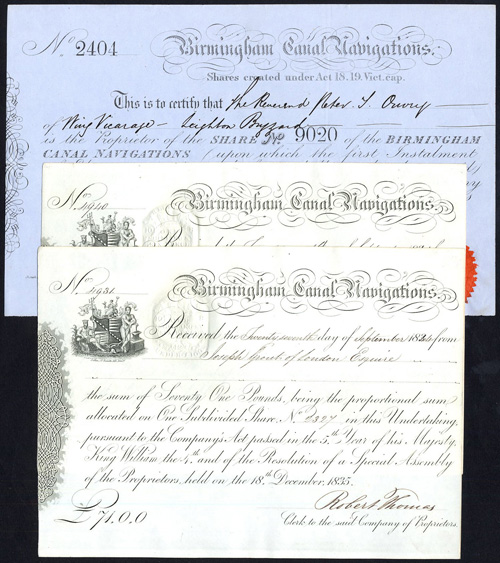 No. 2404 Birmingham Canal Navigations.
Shares created under Act 18.19. Vict. cap.
This is to certify that The Reverend Peter T. Ouvry
of Wing Vicarage - Leighton Buzzard
is the Proprietor of the SHARE No. 9020 of the BIRMINGHAM
CANAL NAVIGATIONS (upon which the first Instalment
No. 4940 Birmingham Canal Navigations.
No. 4931 Birmingham Canal Navigations.
Received the Twenty seventh day of September from
Joseph of London Esquire
the sum of Seventy One Pounds, being the proportional sum
allocated on One Subdivided Share, No. in this Undertaking,
pursuant to the Company's Act passed in the 5th Year of his Majesty,
King William the 4th and of the Resolution of a Special Assembly
of the Proprietors, held on the 18th December, 1835.
£71.0.0 Robert Thomas
Clerk to the said Company of Proprietors.